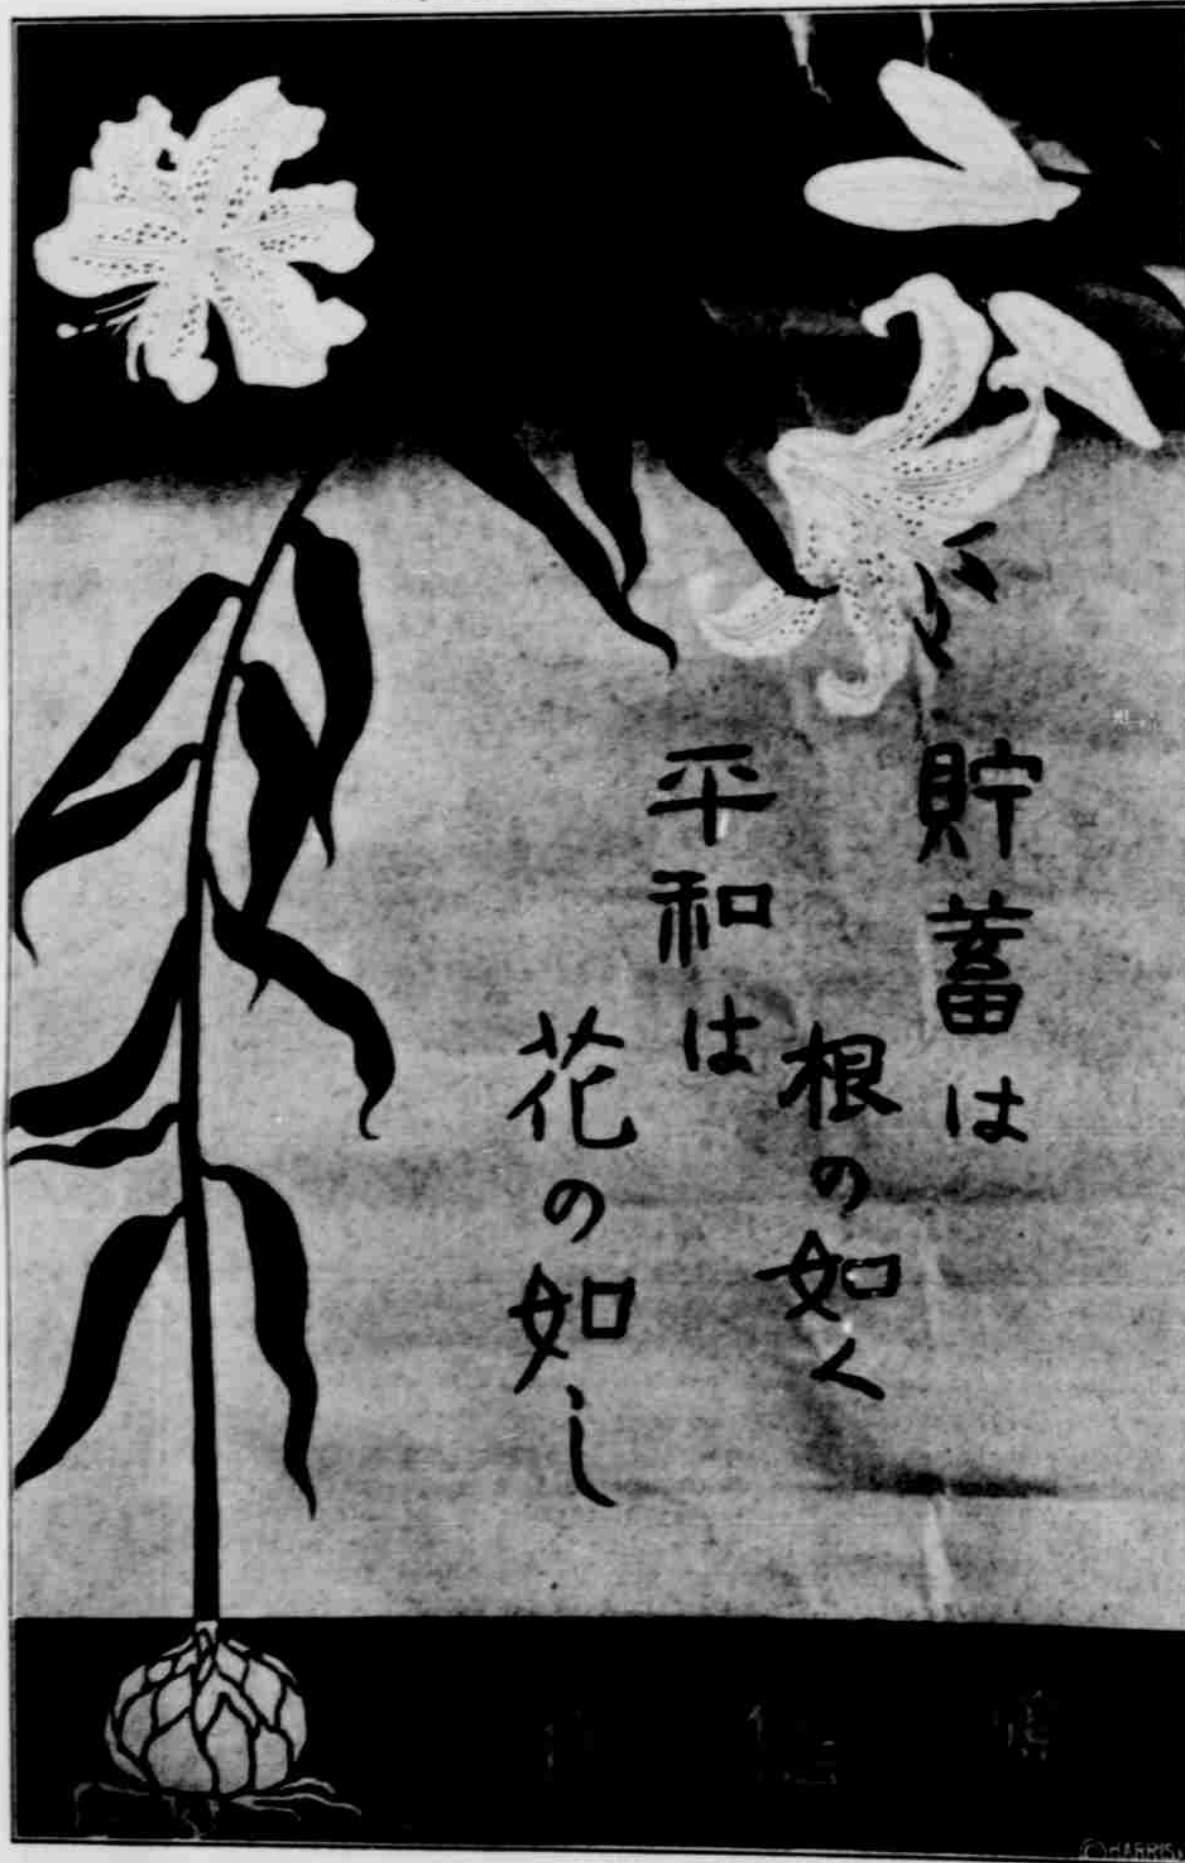 貯蓄は
根の如く
平和は
花の如し
©HARRIS